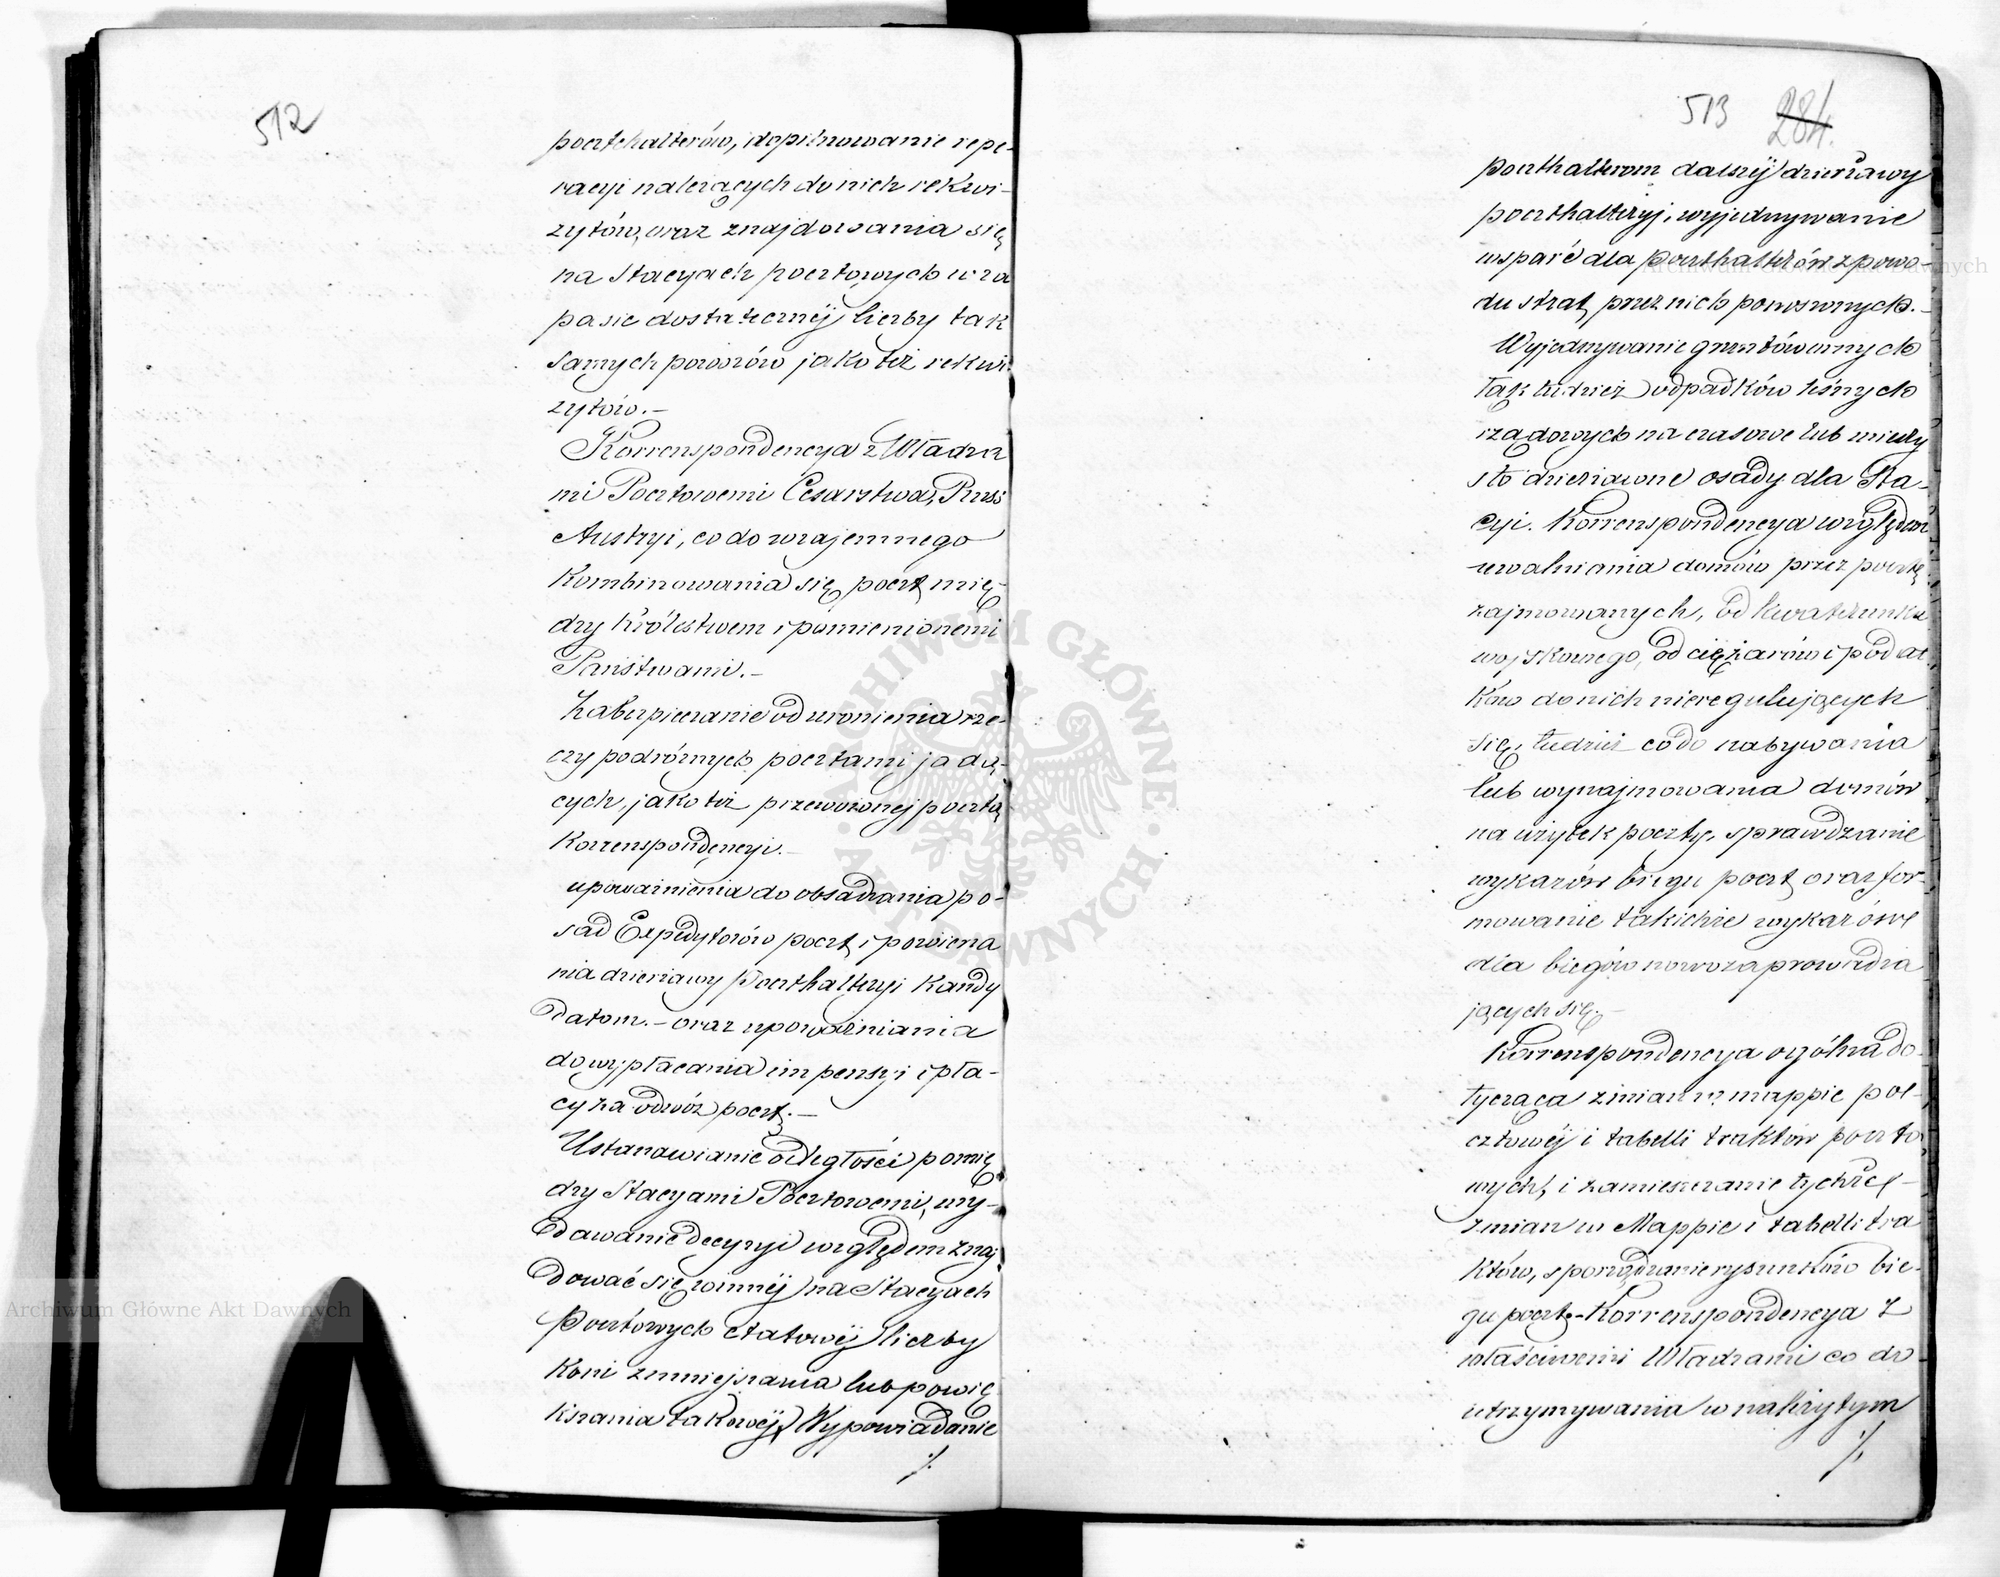 512
poczthalterów, dopilnowanie repe-
racyi należących do nich rekwi-
zytów, oraz znajdowania się
na Stacyach pocztowych w za
pasie dostatecznéj liczby tak
samych powozów jako też rekwi
zytów.—
Korrenspondencya z Władza
mi Pocztowemi Cesarstwa, Pruss
Austryi, co do wzajemnego
Kombinowania się poczt mię-
dzy Królestwem i pomienionemi
Państwami.—
Zabezpieczanie od uronienia rze-
czy podróżnych pocztami jadą-
cych, jako też przewożonej pocztą
Korrenspondencyi.—
upoważnienia do obsadzania po-
sad Expedytorów poczt i powierza
nia dzierżawy Poczthalteryi Kandy
datom.— oraz upoważniania
do wypłacania im pensyi i pła-
cy za odwóz poczt.—
Ustanawianie odległości pomię
dzy Stacyami Pocztowemi, wy-
dawanie decyzyi względem znaj
dować się winnéj na Stacyach
Pocztowych etatowéj liczby
Koni zmniejszania lub powię
kszania takowéj, Wypowiadanie
./.
513 284.
poczthalterom dalszéj dzierżawy
poczthalteryj, wyjednywanie
wsparć dla poczthalterów z powo-
du strat przez nich ponoszonych.—
Wyjednywanie gruntów ornych
tak tudzież odpadków leśnych
rządowych na czasowe lub wieczy
sto dzierżawne osady dla Sta-
cyi. Korrenspondencya względem
uwalniania domów przez pocztę
zajmowanych, od kwaterunku
wojskowego, od ciężarów i podat
ków do nich nieregulujących
się, tudzież co do nabywania
lub wynajmowania domów
na użytek poczty, sprawdzanie
wykazów biegu poczt oraz for-
mowanie takichże wykazów
dla biegów nowozaprowadza
jących się.—
Korrenspondencya ogólna do-
tycząca zmian w mappie po-
cztowéj i tabelli traktów poczto
wych, i zamieszczanie tychże
zmian w Mappie i tabelli tra
któw, sporządzanie rysunków bie-
gu poczt.— Korrenspondencya z
właściwemi Władzami co do
utrzymywania w należytym
./.
Archiwum Główne Akt Dawnych
Archiwum Główne Akt Dawnych
ARCHIWUM GŁÓWNE · AKT DAWNYCH ·